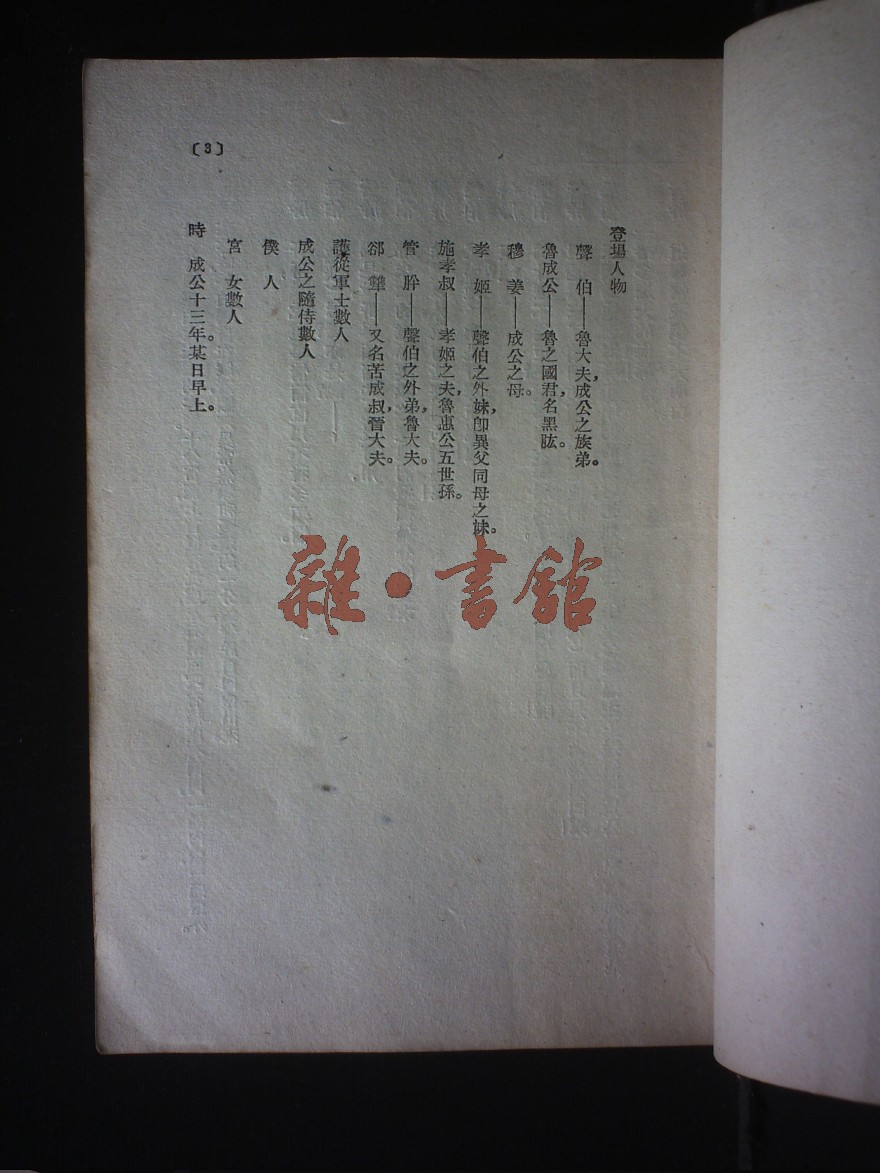 〔3〕
登場人物
聲 伯——魯大夫,成公之族弟。
魯成公——魯之國君,名黑肱。
穆 姜——成公之母。
孝 姬——聲伯之外妹,卽異父同母之妹。
施孝叔——孝姬之夫,魯惠公五世孫。
管 肸——聲伯之外弟,魯大夫。
郤 犨——又名苦成叔,晉大夫。
護從軍士數人
成公之隨侍數人
僕 人
宮 女數人
時 成公十三年。某日早上。
雜·書館